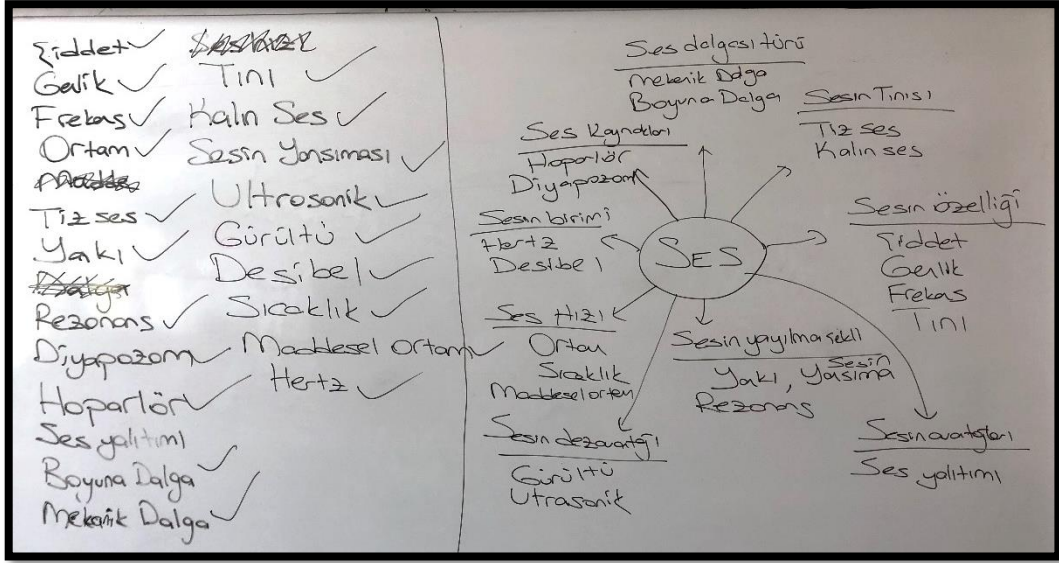 Şiddet
Genlik
Frekans
Ortam
Tiz ses
Yakı
Rezonans
Diyapozom
Hoparlör
Ses yalıtımı
Boyuna Dalga
Mekanik Dalga
Tını
Kalın Ses
Sesin Yansıması
Ultrosonik
Gürültü
Desibel
Sıcaklık
Maddesel Ortam
Hertz
Ses dalgası türü
Mekanik Dalga
Boyuna Dalga
Sesin Tınısı
Tiz ses
Kalın ses
Ses Kaynakları
Hoparlör
Diyapozom
Sesin birimi
Hertz
Desibel
SES
Sesin özelliği
Şiddet
Genlik
Frekas
Tını
Ses Hızı
Ortam
Sıcaklık
Maddesel ortam
Sesin yayılma şekli
Yakı, Sesin Yasıma
Rezonans
Sesin dezavantajı
Gürültü
Utrasonik
Sesin avantajları
Ses yalıtımı